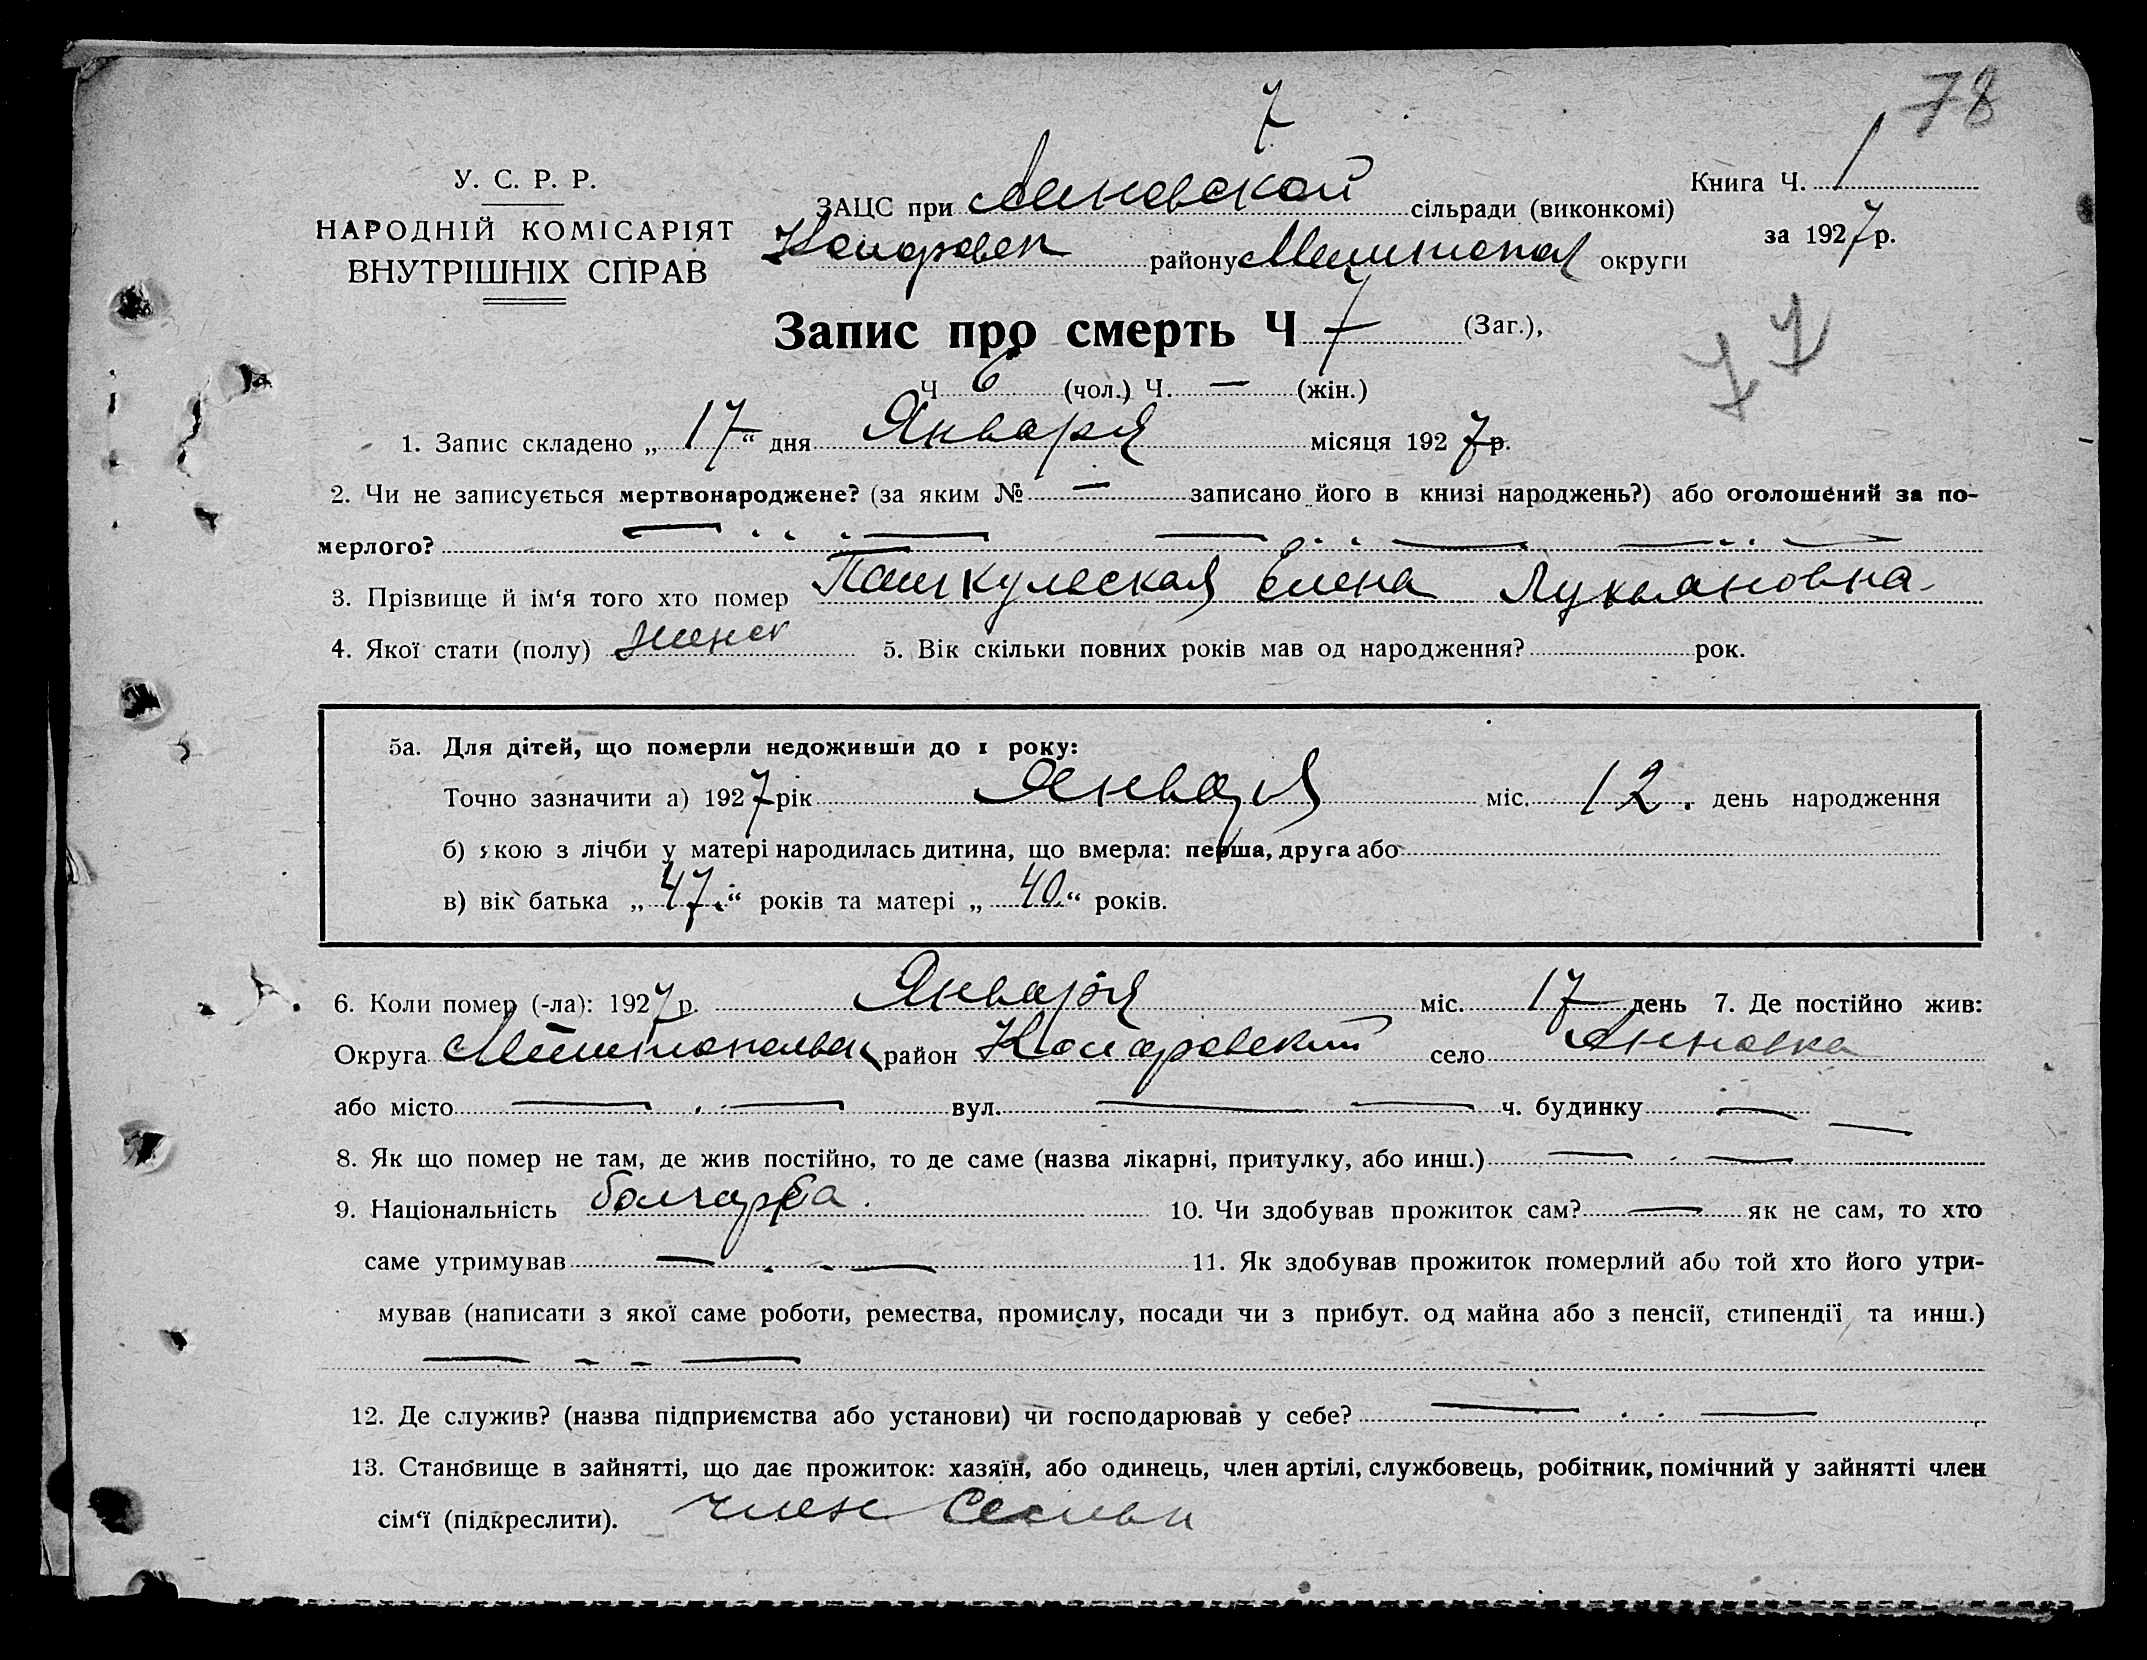 78
7
У. С. Р. Р.
НАРОДНІЙ КОМІСАРІЯТ
ВНУТРІШНІХ СПРАВ
ЗАЦС при сільради (виконкомі)
району Мелитопол округи
Книга Ч. 1
за 1927 р.
Запис про смерть Ч 7 (Заг.),
Ч 6 (чол.) Ч. — (жін.)
77
1. Запис складено „17“ дня Января місяця 1927 р.
2. Чи не записується мертвонароджене? (за яким № — записано його в книзі народжень?) або оголошений за по-
мерлого?
3. Прізвище й ім‘я того хто помер Елена Лукьяновна
4. Якої стати (полу) женск 5. Вік скільки повних років мав од народження? рок.
5а. Для дітей, що померли недоживши до 1 року:
Точно зазначити а) 1927 рік Января міс. 12. день народження
б) якою з лічби у матері народилась дитина, що вмерла: перша, друга або
в) вік батька „47.“ років та матері „40.“ років.
6. Коли помер (-ла): 1927 р. Января міс. 17 день 7. Де постійно жив:
Округа район село Анновка
або місто — вул. — ч. будинку —
8. Як що помер не там, де жив постійно, то де саме (назва лікарні, притулку, або инш.) —
9. Національність болгарка. 10. Чи здобував прожиток сам? — як не сам, то хто
саме утримував — 11. Як здобував прожиток померлий або той хто його утри-
мував (написати з якої саме роботи, ремества, промислу, посади чи з прибут. од майна або з пенсії, стипендії та инш.)
12. Де служив? (назва підприємства або установи) чи господарював у себе? —
13. Становище в зайнятті, що дає прожиток: хазяїн, або одинець, член артілі, службовець, робітник, помічний у зайнятті член
сім‘ї (підкреслити). член семьи